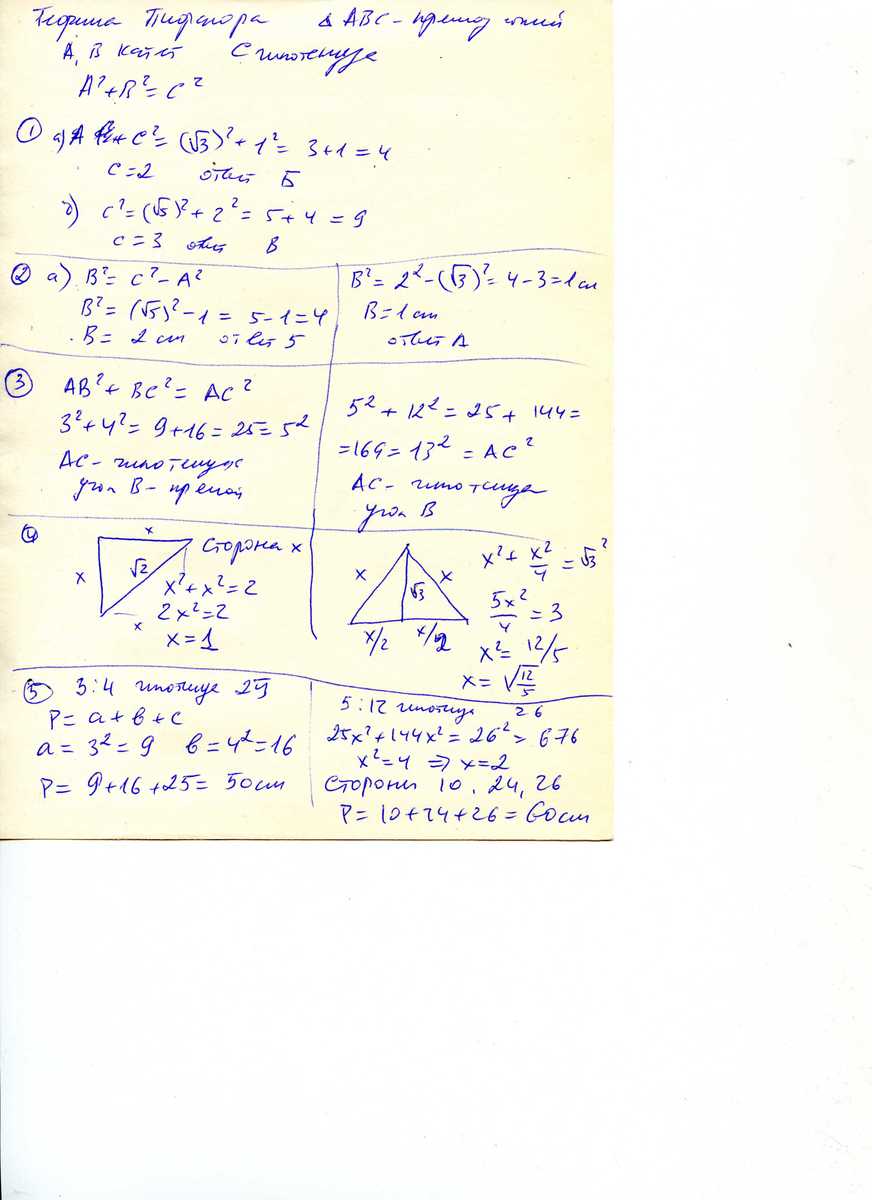 Теорема Пифагора △ ABC - прямоуг
A, B катет C гипотенуза
A² + B² = C²
① а)
C² = (√3)² + 1² = 3+1 = 4
C = 2 ответ Б
б) C² = (√5)² + 2² = 5 + 4 = 9
C = 3 ответ В
② а) B² = C² - A²
B² = (√5)² - 1 = 5-1 = 4
B = 2 cm ответ Б
B² = 2² - (√3)² = 4 - 3 = 1 см
B = 1 cm
ответ А
③ AB² + BC² = AC²
3² + 4² = 9 + 16 = 25 = 5²
AC - гипотенуза
угол B - прямой
5² + 12² = 25 + 144 =
= 169 = 13² = AC²
AC - гипотенуза
угол B
④
x
x √2 Сторона x
x² + x² = 2
2x² = 2
x
x = 1
x √3 x
x/2 x/2
x² + x²/4 = √3²
5x²/4 = 3
x² = 12/5
x = √12/5
⑤ 3:4 гипотенуза
P = a + b + c
a = 3² = 9 b = 4² = 16
P = 9+16+25 = 50 см
5:12 гипотенуза 26
25x² + 144x² = 26² = 676
x² = 4 ⇒ x = 2
Стороны 10, 24, 26
P = 10+24+26 = 60 см